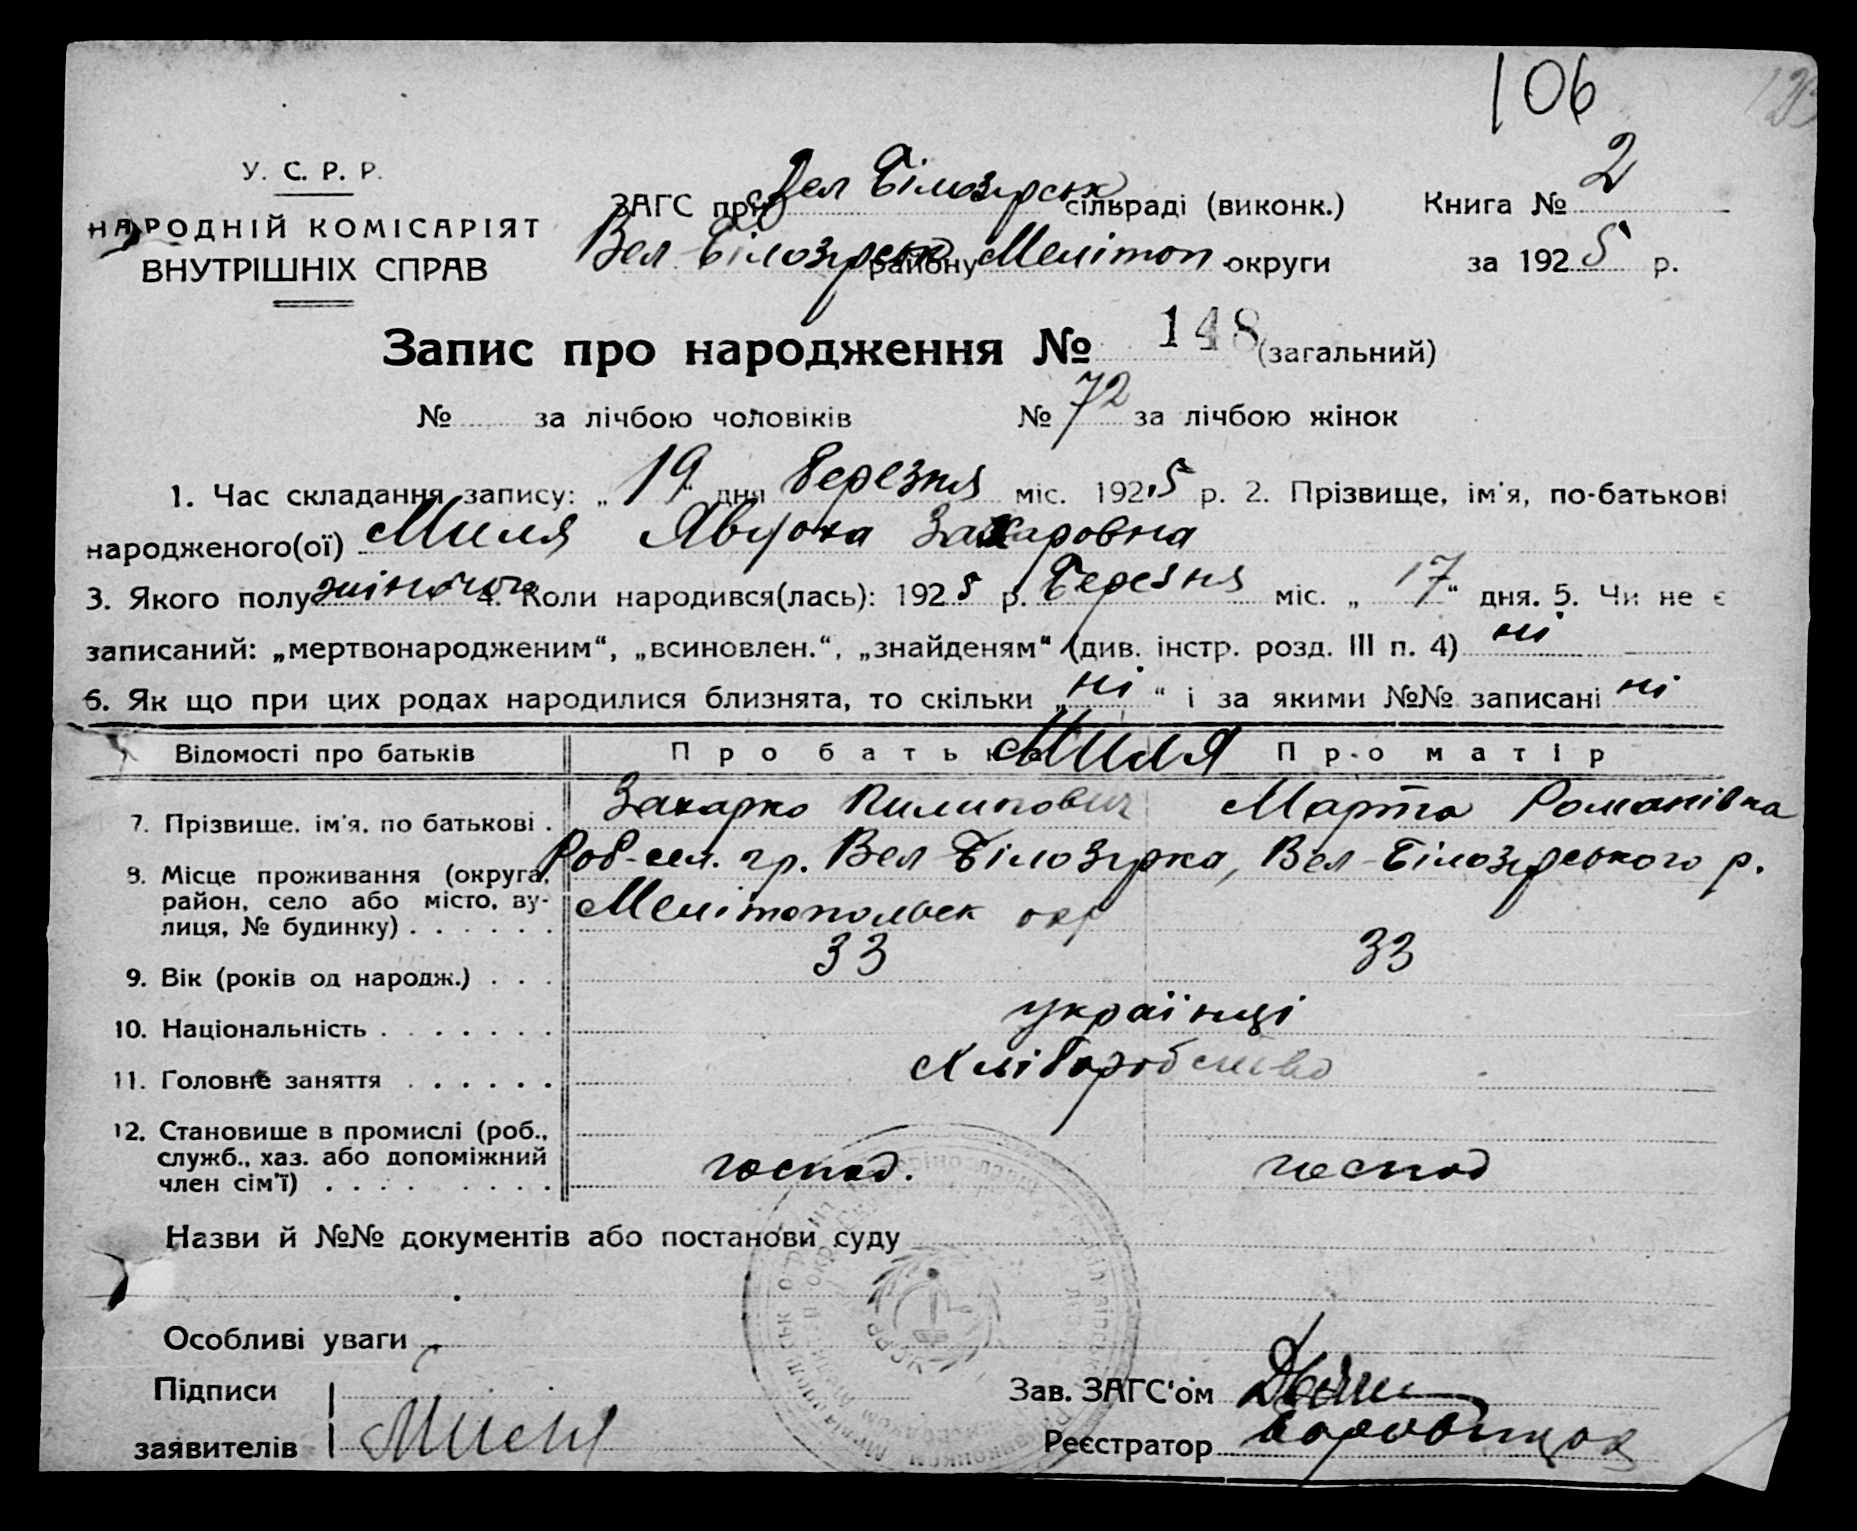 106
У. С. Р. Р.
НАРОДНІЙ КОМІСАРІЯТ
ВНУТРІШНІХ СПРАВ
ЗАГС при Вел Білозірськ сільраді (виконк.) Книга № 2
Вел Білозірськ району Мелітоп. округи за 1925 р.
Запис про народження № 148 (загальний)
№ за лічбою чоловіків № 72 за лічбою жінок
1. Час складання запису: „19“ дня березня міс. 1925 р. 2. Прізвище, ім'я, по-батькові
народженого(ої) Миля Явдоха Захаровна
3. Якого полу жіночого 4. Коли народився(лась): 1925 р. березня міс. „17“ дня. 5. Чи не є
записаний: „мертвонародженим“, „всиновлен.“, „знайденям“ (див. інстр. розд. III п. 4) ні
6. Як що при цих родах народилися близнята, то скільки „ні“ і за якими №№ записані ні
Відомості про батьків Про батька Миля Про матір
7. Прізвище, ім'я, по батькові . Захарко Пилипович Марта Романівна
8. Місце проживання (округа, район, село або місто, вулиця, № будинку) . . . . . . Роб-сел. гр. Вел Білозірка, Вел-Білозірського р.
Мелітопольськ окр
9. Вік (років од народж.) . . . 33 33
10. Національність . . . . . . . українці
11. Головне заняття . . . . . . хліборобство
12. Становище в промислі (роб., служб., хаз. або допоміжний член сім'ї) . . . . . . . . господ. господ
Назви й №№ документів або постанови суду
Особливі уваги
Підписи
заявителів Миля
Зав. ЗАГС'ом
Реєстратор
УСРР